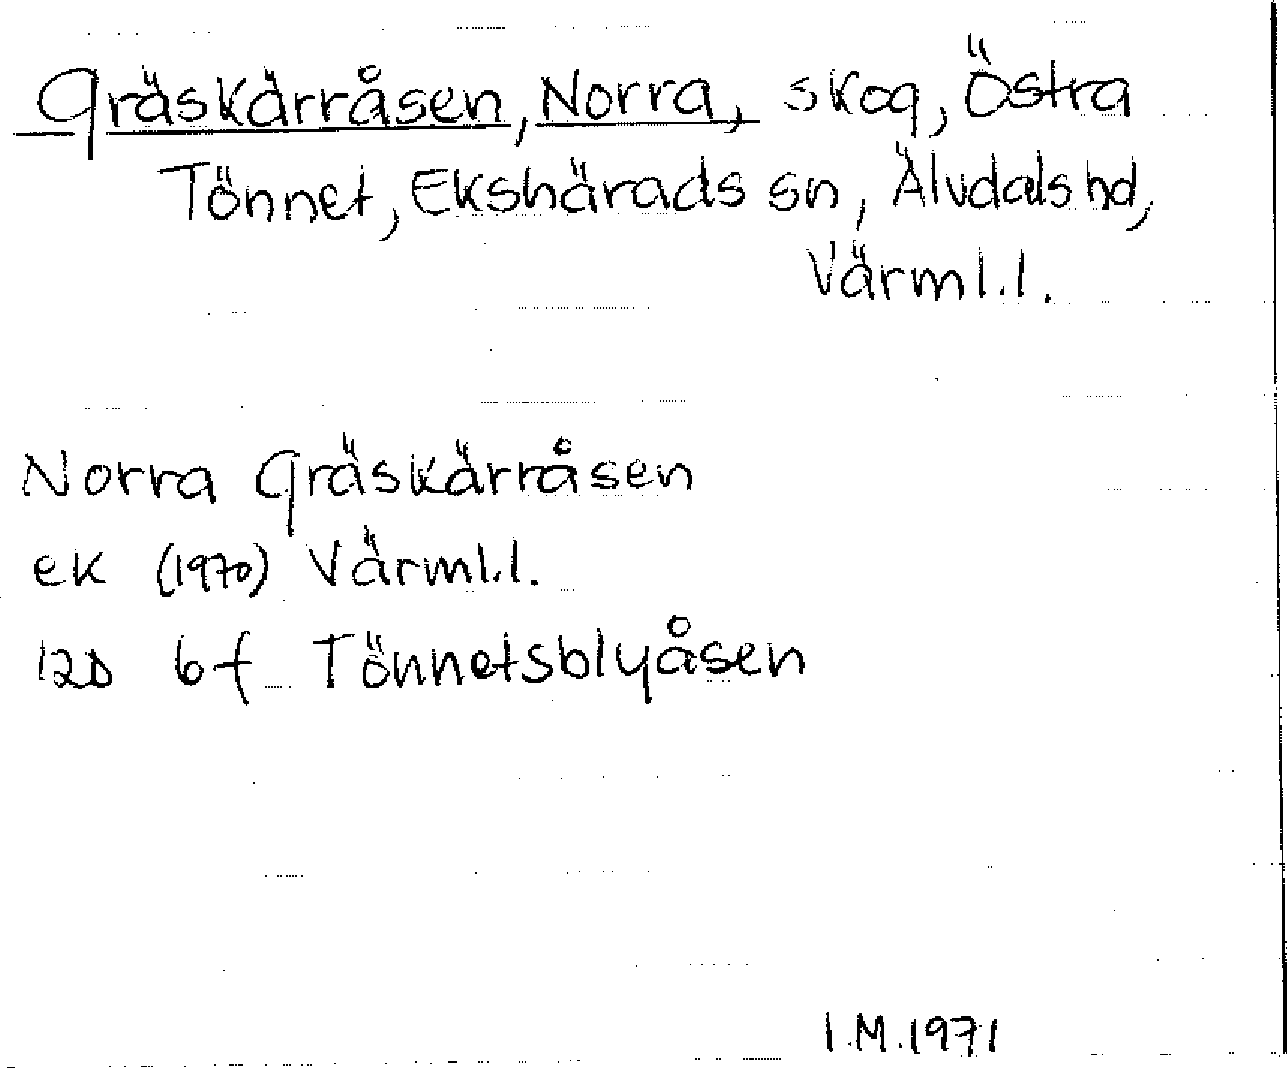 Gräskärråsen, Norra, skog, Östra
Tönnet, Ekshärads sn, Älvdals hd,
Värml.l.
Norra Gräskärråsen
ek (1970) Värml.l.
12D 6f Tönnetsblyåsen
I.M.1971